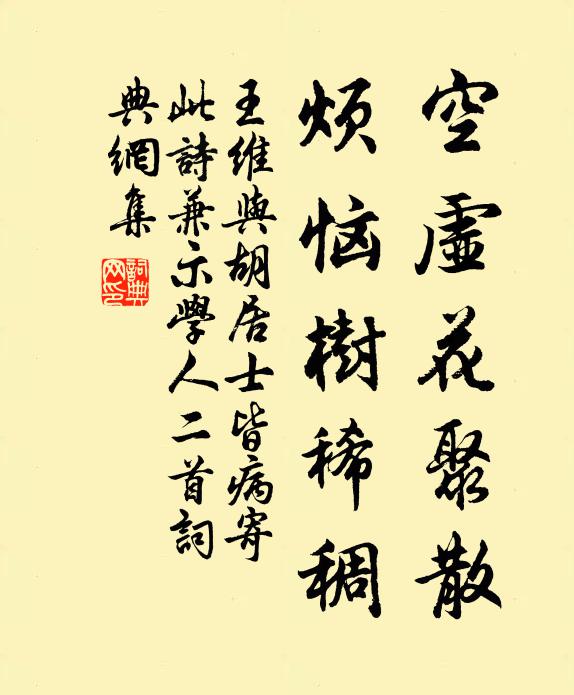 空虛花聚散
煩惱樹稀稠
王維與胡居士皆病寄
此詩兼示學人二首詞
典網集
詞典
网印